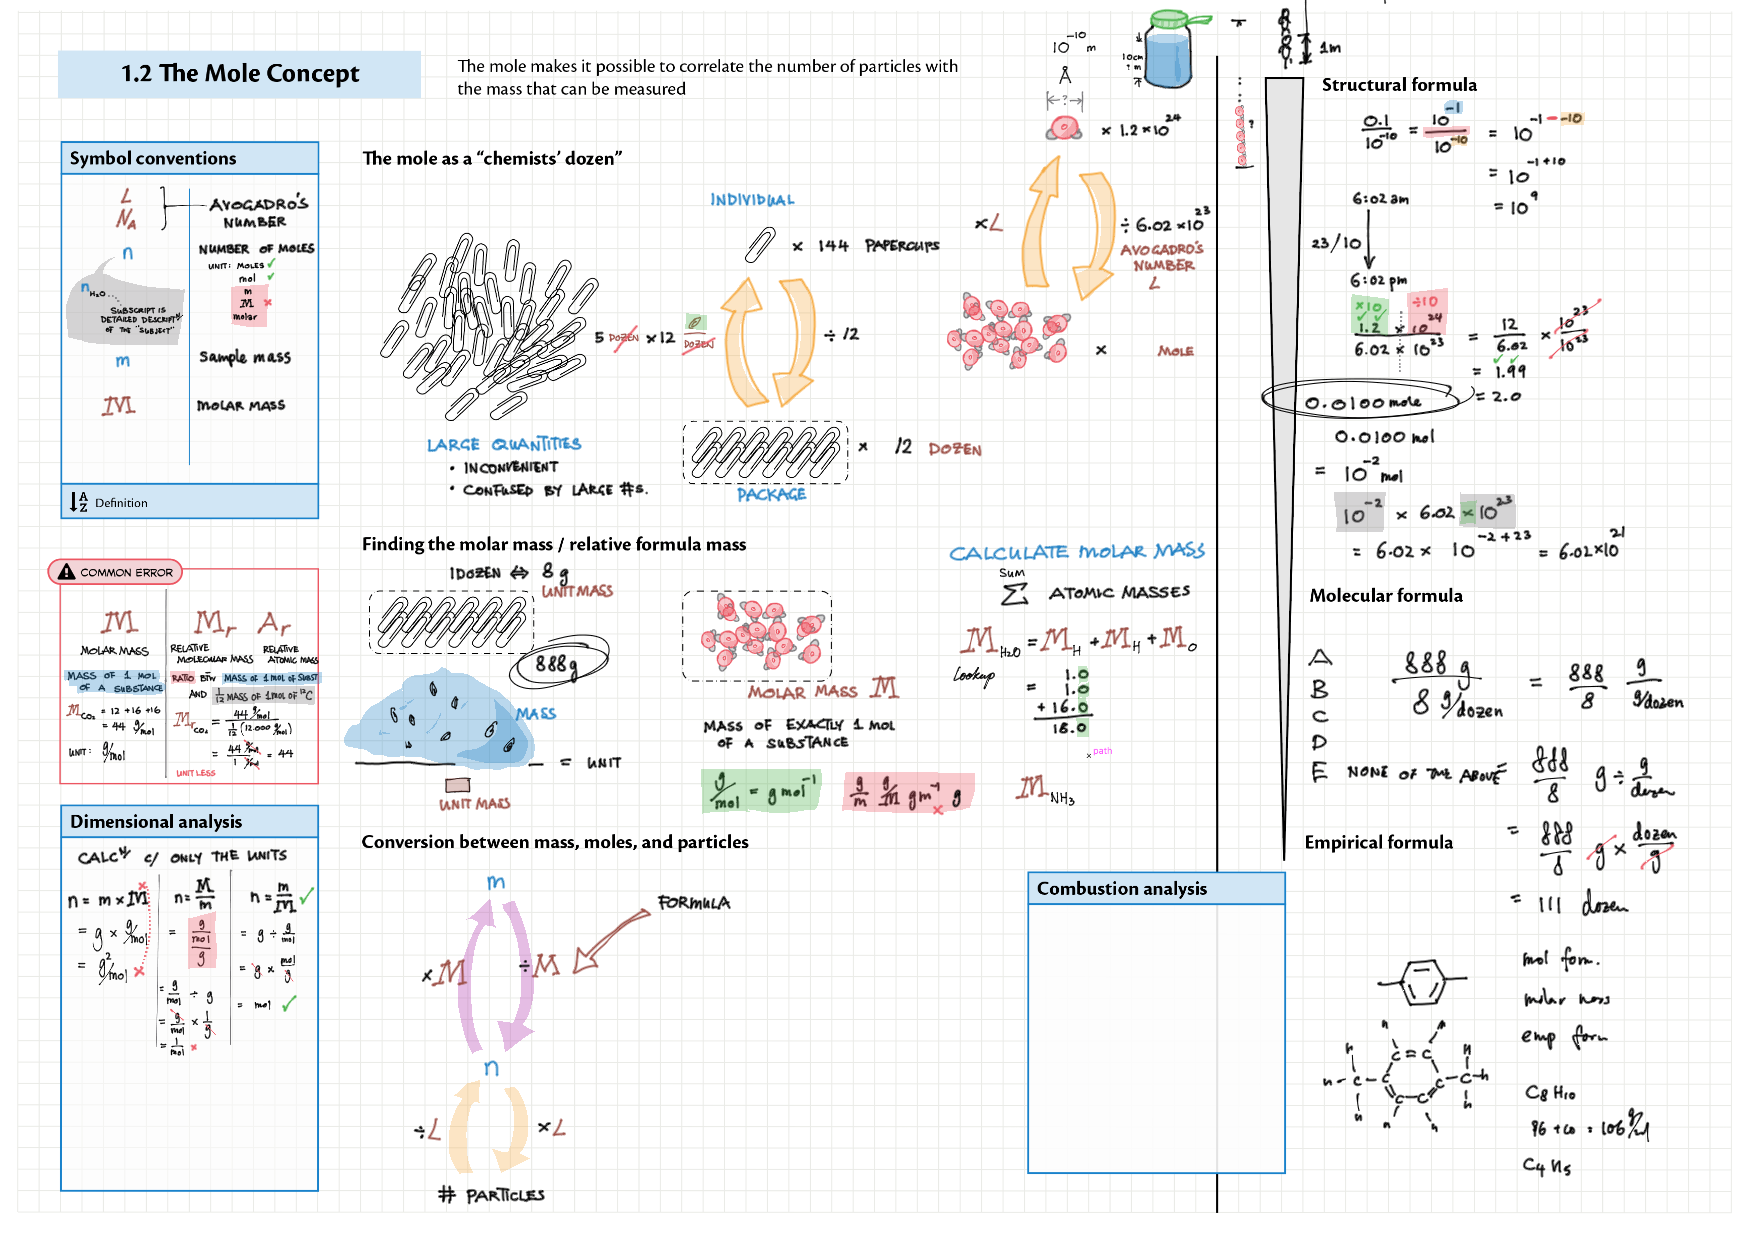 1.2 The Mole Concept
The mole makes it possible to correlate the number of particles with
the mass that can be measured
Symbol conventions
L
N_A
AVOGADRO'S
NUMBER
n
NUMBER OF MOLES
UNIT: MOLES ✓
mol ✓
m
M ×
molar
n H₂O...
SUBSCRIPT IS
DETAILED DESCRIPT^N
OF THE "SUBJECT"
m
Sample mass
M
MOLAR MASS
A
Z Definition
COMMON ERROR
M
MOLAR MASS
MASS OF 1 MOL
OF A SUBSTANCE
M CO₂ = 12 + 16 + 16
= 44 g/mol
UNIT: g/mol
Mr Ar
RELATIVE
MOLECULAR MASS
RELATIVE
ATOMIC MASS
RATIO BTW MASS OF 1 MOL OF SUBST
AND 1/12 MASS OF 1 MOL OF ¹²C
Mr CO₂ = 44 g/mol / 1/12 (12.000 g/mol)
= 44 g/mol / 1 g/mol = 44
UNITLESS
Dimensional analysis
CALC^N c/ ONLY THE UNITS
n = m × M ×
= g × g/mol
= g²/mol ×
n = M/m
= g/mol / g
= g/mol ÷ g
= g/mol × 1/g
= 1/mol ×
n = m/M ✓
= g ÷ g/mol
= g × mol/g
= mol ✓
The mole as a "chemists' dozen"
LARGE QUANTITIES
• INCONVENIENT
• CONFUSED BY LARGE #S.
INDIVIDUAL
× 144 PAPERCLIPS
5 DOZEN × 12 /DOZEN
÷ 12
× 12 DOZEN
PACKAGE
10⁻¹⁰ m
Å
←?→
× 1.2 × 10²⁴
×L
÷ 6.02 × 10²³
AVOGADRO'S
NUMBER
L
× MOLE
10cm
? m
?
1m
Finding the molar mass / relative formula mass
1 DOZEN ⇔ 8 g
UNIT MASS
888g
MASS
= UNIT
UNIT MASS
MOLAR MASS M
MASS OF EXACTLY 1 MOL
OF A SUBSTANCE
g/mol = g mol⁻¹
g/m g/M gm⁻¹ g
×
CALCULATE MOLAR MASS
SUM
Σ ATOMIC MASSES
M H₂O = M H + M H + M O
Lookup
1.0
= 1.0
+ 16.0
18.0
path
M NH₃
Conversion between mass, moles, and particles
m
FORMULA
×M
÷M
n
÷L
×L
# PARTICLES
Combustion analysis
Structural formula
0.1/10⁻¹⁰ = 10⁻¹/10⁻¹⁰ = 10⁻¹⁻⁻¹⁰
= 10⁻¹⁺¹⁰
= 10⁹
6:02 am
23/10
6:02 pm
×10 ÷10
1.2 × 10²⁴ / 6.02 × 10²³ = 12/6.02 × 10²³/10²³
= 1.99
= 2.0
0.0100 mole
0.0100 mol
= 10⁻² mol
10⁻² × 6.02 × 10²³
= 6.02 × 10⁻²⁺²³ = 6.02×10²¹
Molecular formula
A
B
C
D
E NONE OF THE ABOVE
888 g / 8 g/dozen = 888/8 g / g/dozen
888/8 g ÷ g/dozen
= 888/8 g × dozen/g
= 111 dozen
Empirical formula
mol form.
molar mass
emp form
C8H10
96 + 10 = 106 g/mol
C4H5